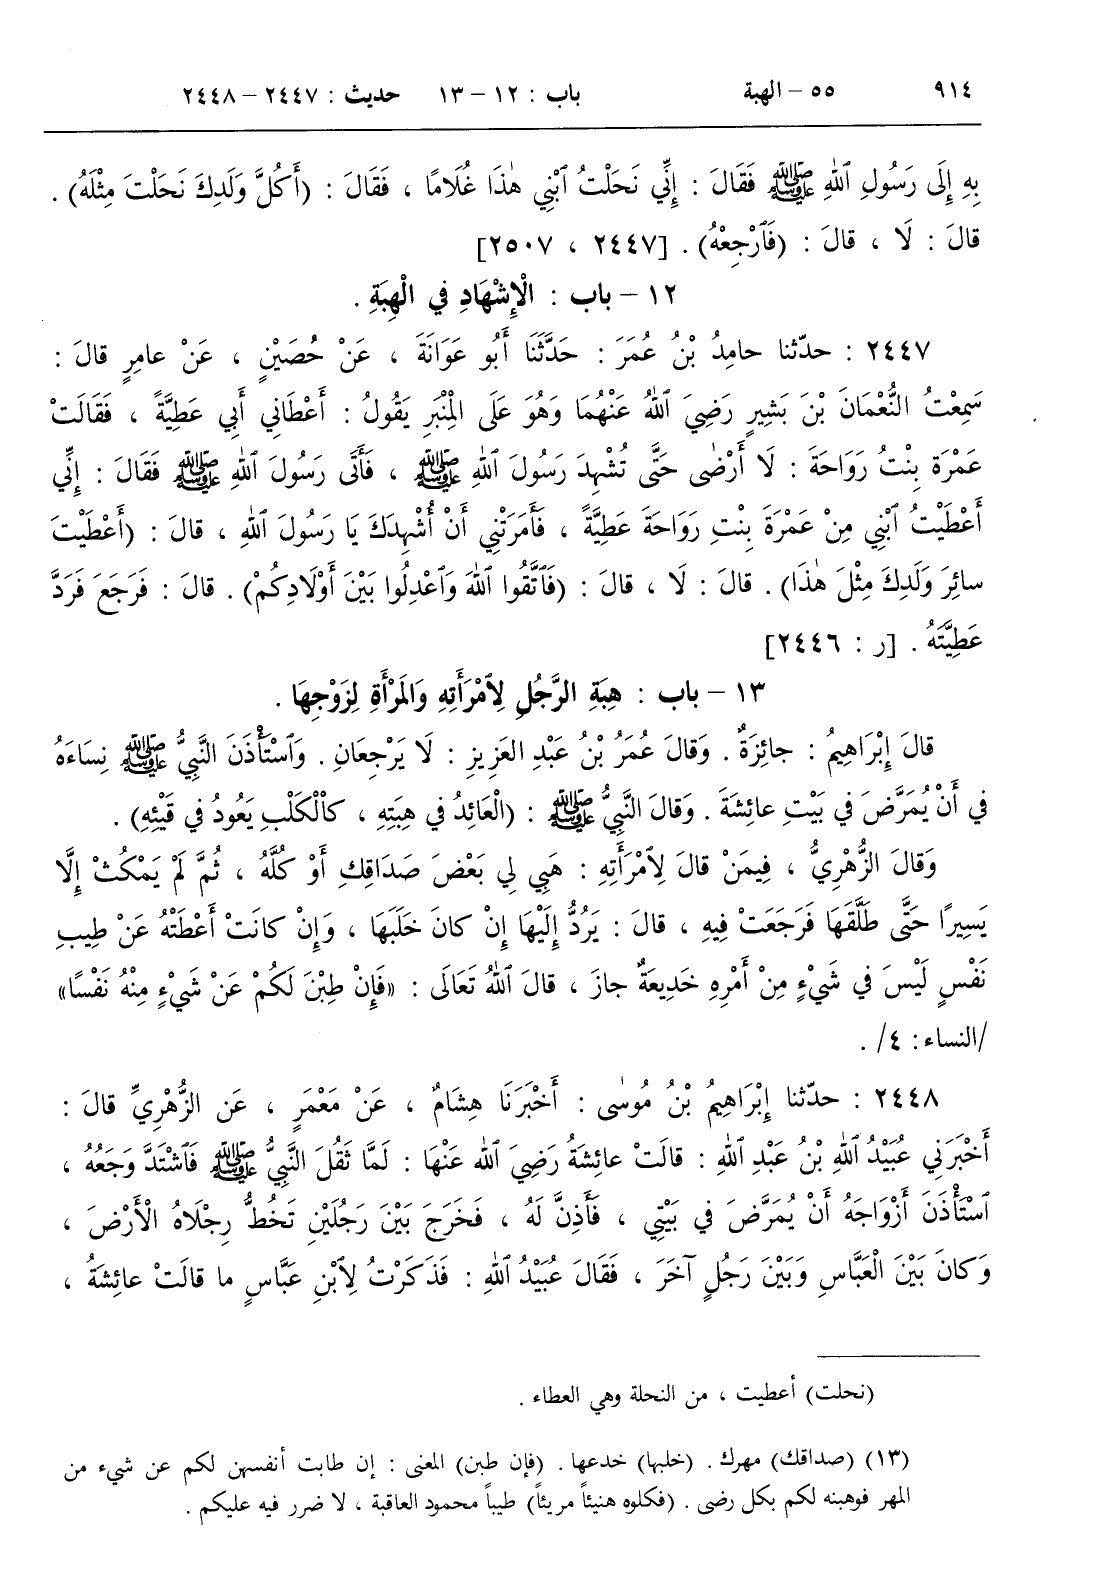 ٩١٤ ٥٥ – الهبة باب : ١٢ – ١٣ حديث : ٢٤٤٧ – ٢٤٤٨
بِهِ إِلَى رَسُولِ ٱللهِ ﷺ فَقَالَ : إِنِّي نَحَلْتُ ٱبْنِي هٰذَا غُلَامًا ، فَقَالَ : (أَكُلَّ وَلَدِكَ نَحَلْتَ مِثْلَهُ) .
قالَ : لَا ، قالَ : (فَٱرْجِعْهُ) . [٢٤٤٧ ، ٢٥٠٧]
١٢ – باب : الْإِشْهَادِ في الْهِبَةِ .
٢٤٤٧ : حدّثنا حامِدُ بْنُ عُمَرَ : حَدَّثَنَا أَبُو عَوَانَةَ ، عَنْ حُصَيْنٍ ، عَنْ عامِرٍ قالَ :
سَمِعْتُ النُّعْمَانَ بْنَ بَشِيرٍ رَضِيَ ٱللهُ عَنْهُمَا وَهُوَ عَلَى الْمِنْبَرِ يَقُولُ : أَعْطَانِي أَبِي عَطِيَّةً ، فَقَالَتْ
عَمْرَة بِنْتُ رَوَاحَةَ : لَا أَرْضٰى حَتَّى تُشْهِدَ رَسُولَ ٱللهِ ﷺ ، فَأَتَى رَسُولَ ٱللهِ ﷺ فَقَالَ : إِنِّي
أَعْطَيْتُ ٱبْنِي مِنْ عَمْرَةَ بِنْتِ رَوَاحَةَ عَطِيَّةً ، فَأَمَرَتْنِي أَنْ أُشْهِدَكَ يَا رَسُولَ ٱللهِ ، قالَ : (أَعْطَيْتَ
سائِرَ وَلَدِكَ مِثْلَ هٰذَا) . قالَ : لَا ، قالَ : (فَٱتَّقُوا ٱللهَ وَٱعْدِلُوا بَيْنَ أَوْلَادِكُمْ) . قالَ : فَرَجَعَ فَرَدَّ
عَطِيَّتَهُ . [ر : ٢٤٤٦]
١٣ – باب : هِبَةِ الرَّجُلِ لِٱمْرَأَتِهِ وَالمَرْأَةِ لِزَوْجِهَا .
قالَ إِبْرَاهِيمُ : جائِزَةٌ . وَقالَ عُمَرُ بْنُ عَبْدِ الْعَزِيزِ : لَا يَرْجِعَانِ . وَٱسْتَأْذَنَ النَّبِيُّ ﷺ نِسَاءَهُ
في أَنْ يُمَرَّضَ في بَيْتِ عائِشَةَ . وَقالَ النَّبِيُّ ﷺ : (الْعَائِدُ في هِبَتِهِ ، كالْكَلْبِ يَعُودُ في قَيْئِهِ) .
وَقالَ الزُّهْرِيُّ ، فِيمَنْ قالَ لِٱمْرَأَتِهِ : هَبِي لِي بَعْضَ صَدَاقِكِ أَوْ كُلَّهُ ، ثُمَّ لَمْ يَمْكُثْ إِلَّا
يَسِيرًا حَتَّى طَلَّقَهَا فَرَجَعَتْ فِيهِ ، قالَ : يَرُدُّ إِلَيْهَا إِنْ كانَ خَلَبَهَا ، وَإِنْ كانَتْ أَعْطَتْهُ عَنْ طِيبِ
نَفْسٍ لَيْسَ في شَيْءٍ مِنْ أَمْرِهِ خَدِيعَةٌ جازَ ، قالَ ٱللهُ تَعَالَى : «فَإِنْ طِبْنَ لَكُمْ عَنْ شَيْءٍ مِنْهُ نَفْسًا»
/النساء: ٤/ .
٢٤٤٨ : حدّثنا إِبْرَاهِيمُ بْنُ مُوسٰى : أَخْبَرَنَا هِشَامٌ ، عَنْ مَعْمَرٍ ، عَنِ الزُّهْرِيِّ قالَ :
أَخْبَرَنِي عُبَيْدُ ٱللهِ بْنُ عَبْدِ ٱللهِ : قالَتْ عائِشَةُ رَضِيَ ٱلله عَنْهَا : لَمَّا ثَقُلَ النَّبِيُّ ﷺ فَٱشْتَدَّ وَجَعُهُ ،
ٱسْتَأْذَنَ أَزْوَاجَهُ أَنْ يُمَرَّضَ في بَيْتِي ، فَأَذِنَّ لَهُ ، فَخَرَجَ بَيْنَ رَجُلَيْنِ تَخُطُّ رِجْلَاهُ الْأَرْضَ ،
وَكانَ بَيْنَ الْعَبَّاسِ وَبَيْنَ رَجُلٍ آخَرَ ، فَقَالَ عُبَيْدُ ٱللهِ : فَذَكَرْتُ لِٱبْنِ عَبَّاسٍ ما قالَتْ عائِشَةُ ،
(نحلت) أعطيت ، من النحلة وهي العطاء .
(١٣) (صداقك) مهرك . (خلبها) خدعها . (فإن طبن) المعنى : إن طابت أنفسهن لكم عن شيء من
المهر فوهبنه لكم بكل رضى . (فكلوه هنيئاً مريئاً) طيباً محمود العاقبة ، لا ضرر فيه عليكم .